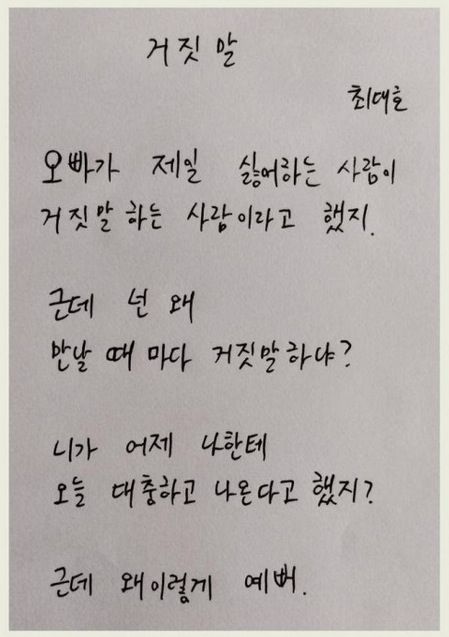 거짓말
최대호
오빠가 제일 싫어하는 사람이
거짓말 하는 사람이라고 했지.
근데 넌 왜
만날 때 마다 거짓말하냐?
니가 어제 나한테
오늘 대충하고 나온다고 했지?
근데 왜이렇게 예뻐.